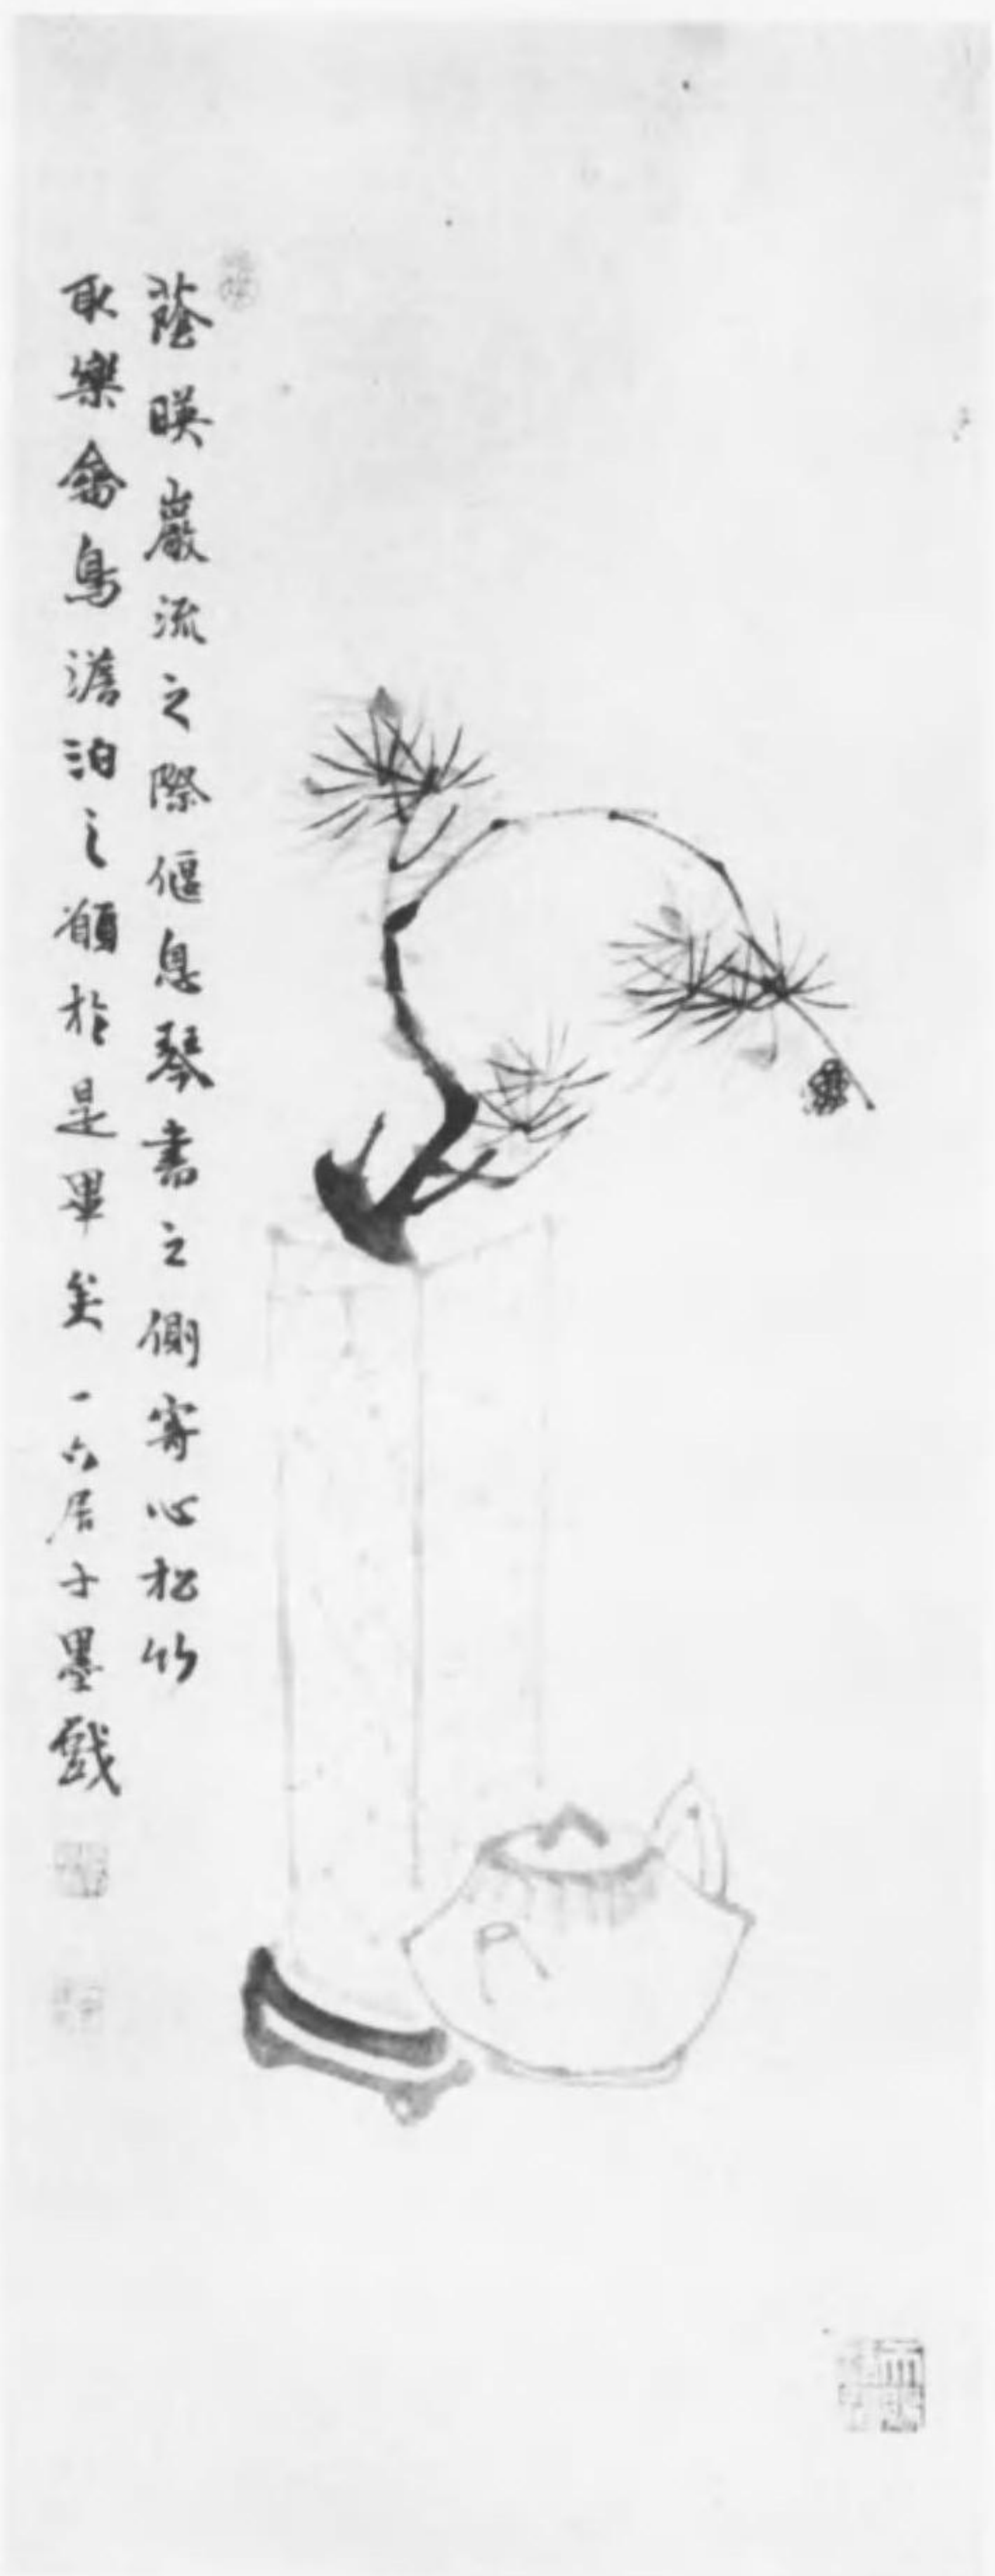 蔭暎巖流之際偃息琴書之側寄心松竹
取樂禽鳥澹泊之願於是畢矣一六居士墨戲